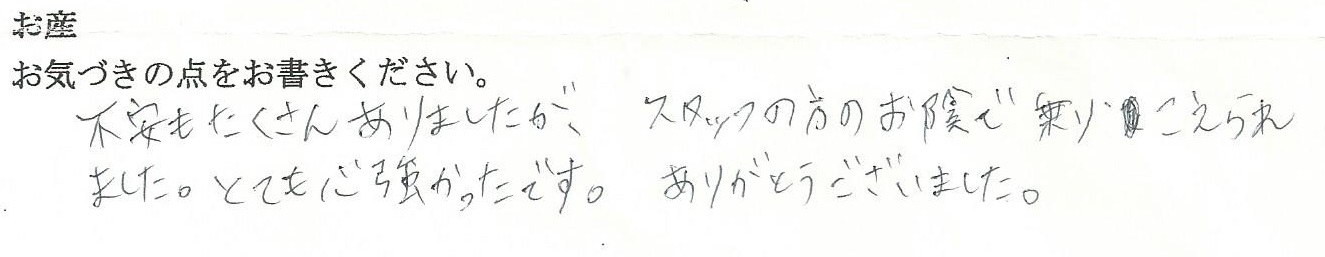 お産
お気づきの点をお書きください。
不安もたくさんありましたが、スタッフの方のお陰で乗りこえられ
ました。とても心強かったです。ありがとうございました。